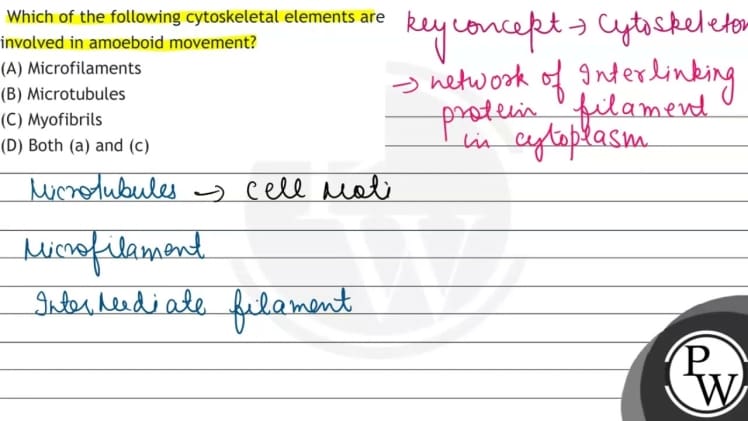 Which of the following cytoskeletal elements are
involved in amoeboid movement?
(A) Microfilaments
(B) Microtubules
(C) Myofibrils
(D) Both (a) and (c)
key concept → Cytoskeleton
→ network of Interlinking
protein filament
in cytoplasm
Microtubules → cell Moti
Microfilament
Intermediate filament
PW